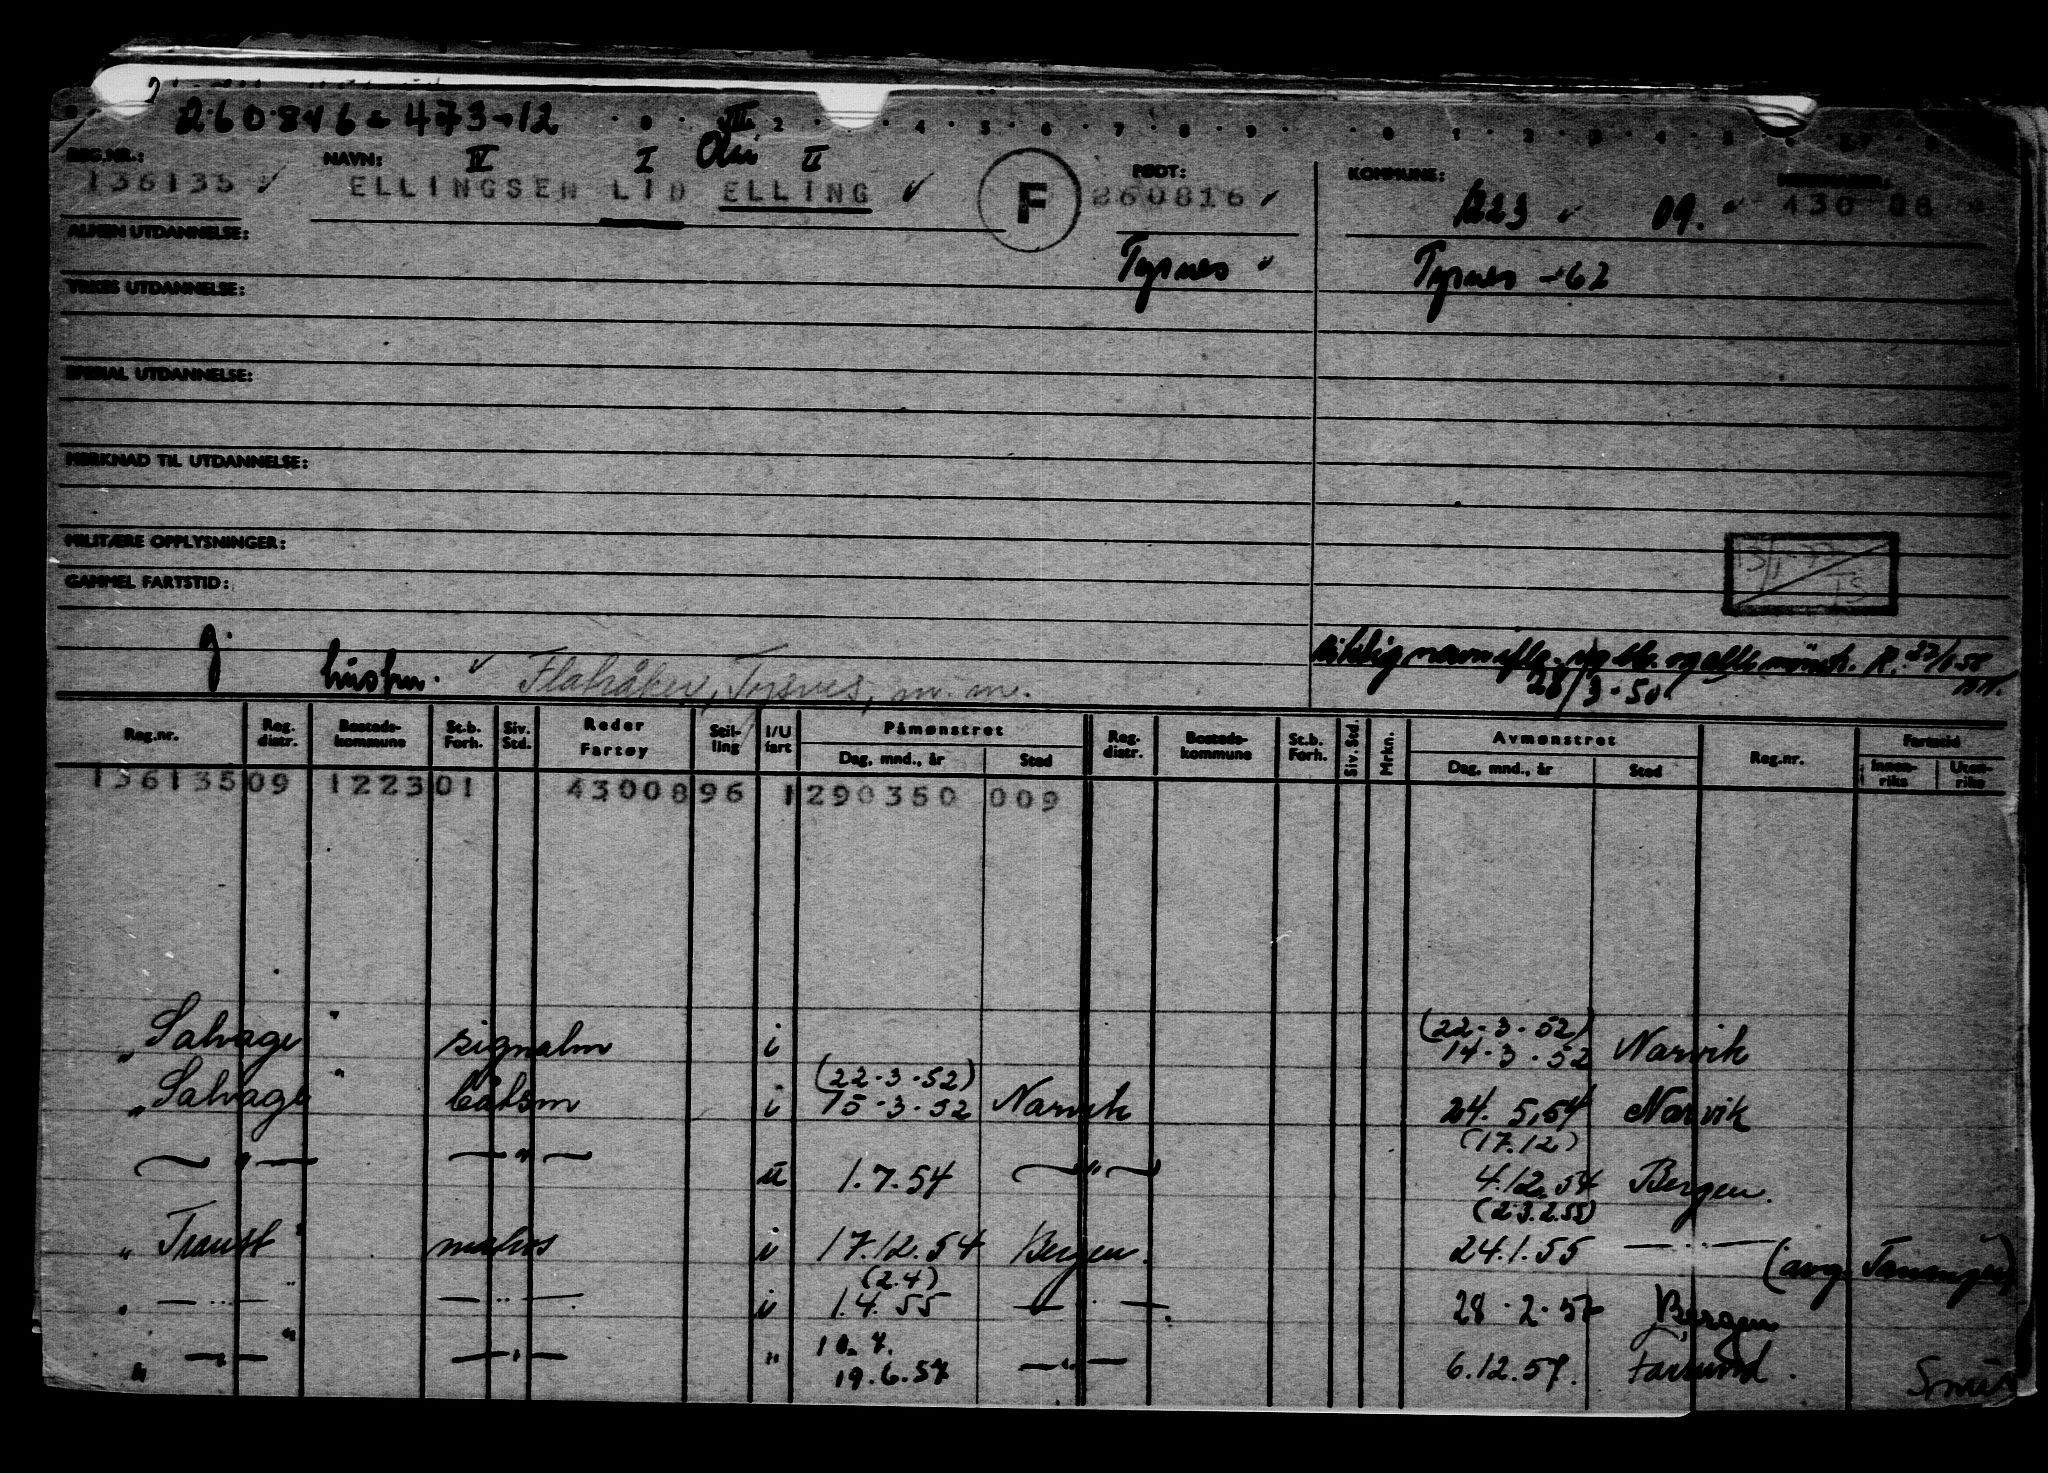 260816 473-12
III
REG.NR.: NAVN: IV I II FØDT: KOMMUNE:
136135 ELLINGSEN LID ELLING F 260816 1223 09. 430 08
Tysnes Tysnes -62
ALMEN UTDANNELSE:
YRKES UTDANNELSE:
SPESIAL UTDANNELSE:
MERKNAD TIL UTDANNELSE:
MILITÆRE OPPLYSNINGER:
GAMMEL FARTSTID:
13/1-77
TS
riktig navn
g. hustru. Flatråker, Tysnes, m.m. 28/3-50
Reg.nr. Reg. distr. Bosteds- kommune St.b. Forh. Siv. Std. Reder Fartøy Stil- ling I/U fart Påmønstret Dag, mnd., år Sted Reg. distr. Bosteds- kommune St.b. Forh. Siv. Std. Mrkn. Avmønstret Dag, mnd., år Sted Reg.nr. Fartstid Innen- riks Uten- riks
136135 09 1223 01 4300896 1 290350 009
(22-3-52)
" Salvage " signalm i 14-3-52 Narvik
(22-3-52)
" Salvage " båtsm i 15-3-52 Narvik 24.5.54 Narvik
(17.12)
— " — — " — u 1.7.54 — " — 4.12.54 Bergen.
(23.2.55)
" Traust " matros i 17.12.54 Bergen. 24.1.55 — " — (avg. Tananger)
(2.4)
" — " — " — " — i 1.4.55 — " — 28-2-57 Bergen
10.7.
" — " — " — " — " 19.6.57 — " — 6.12.57. Farsund.